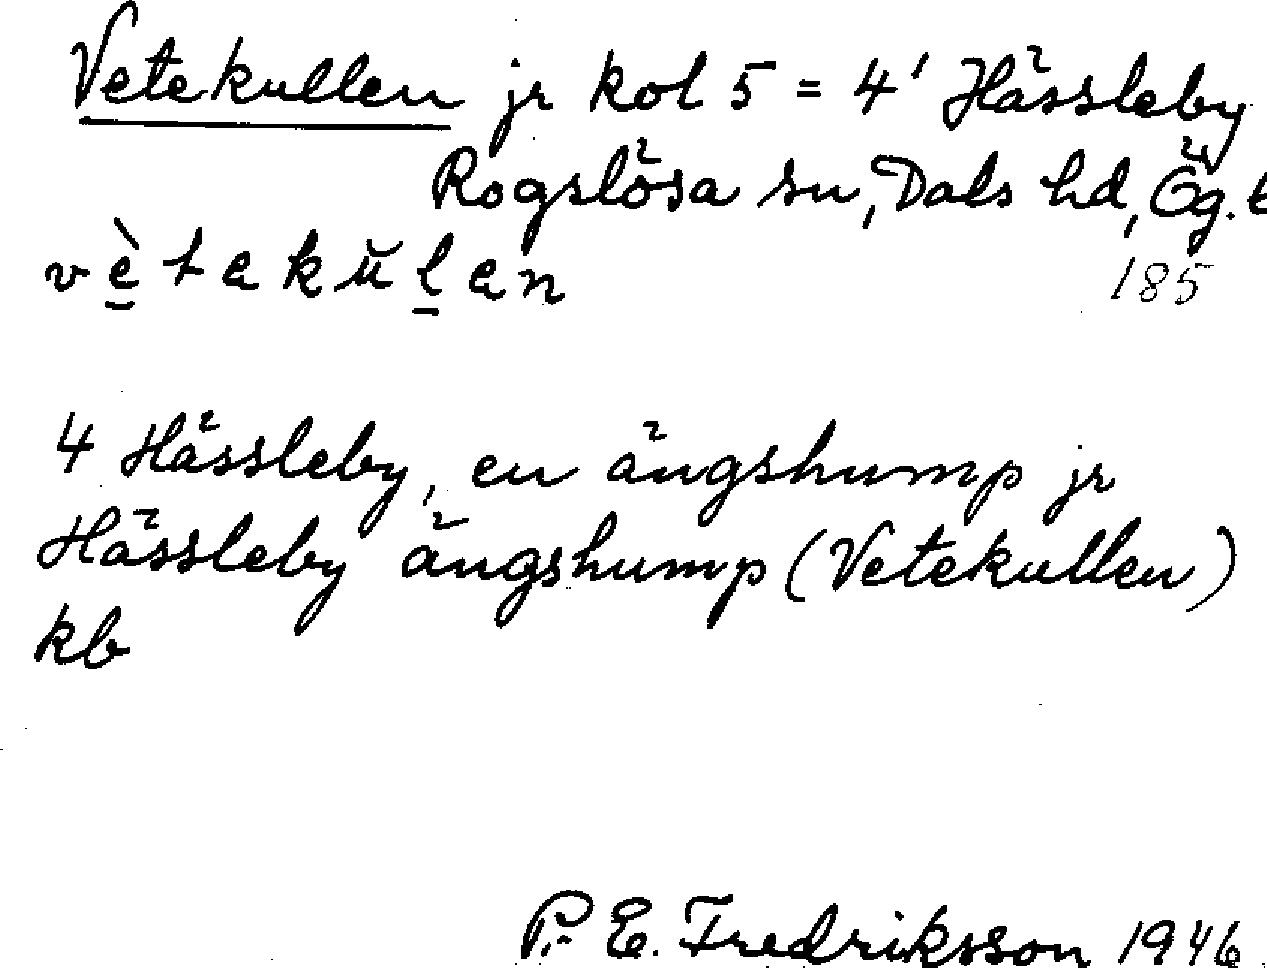 Vetekullen jr kol 5 = 4' Hässleby
Rogslösa sn, Dals hd, Ög. l
vètakulan
185
4 Hässleby, en ängshump jr
Hässleby ängshump (Vetekullen)
kb
P. E. Fredriksson 1946